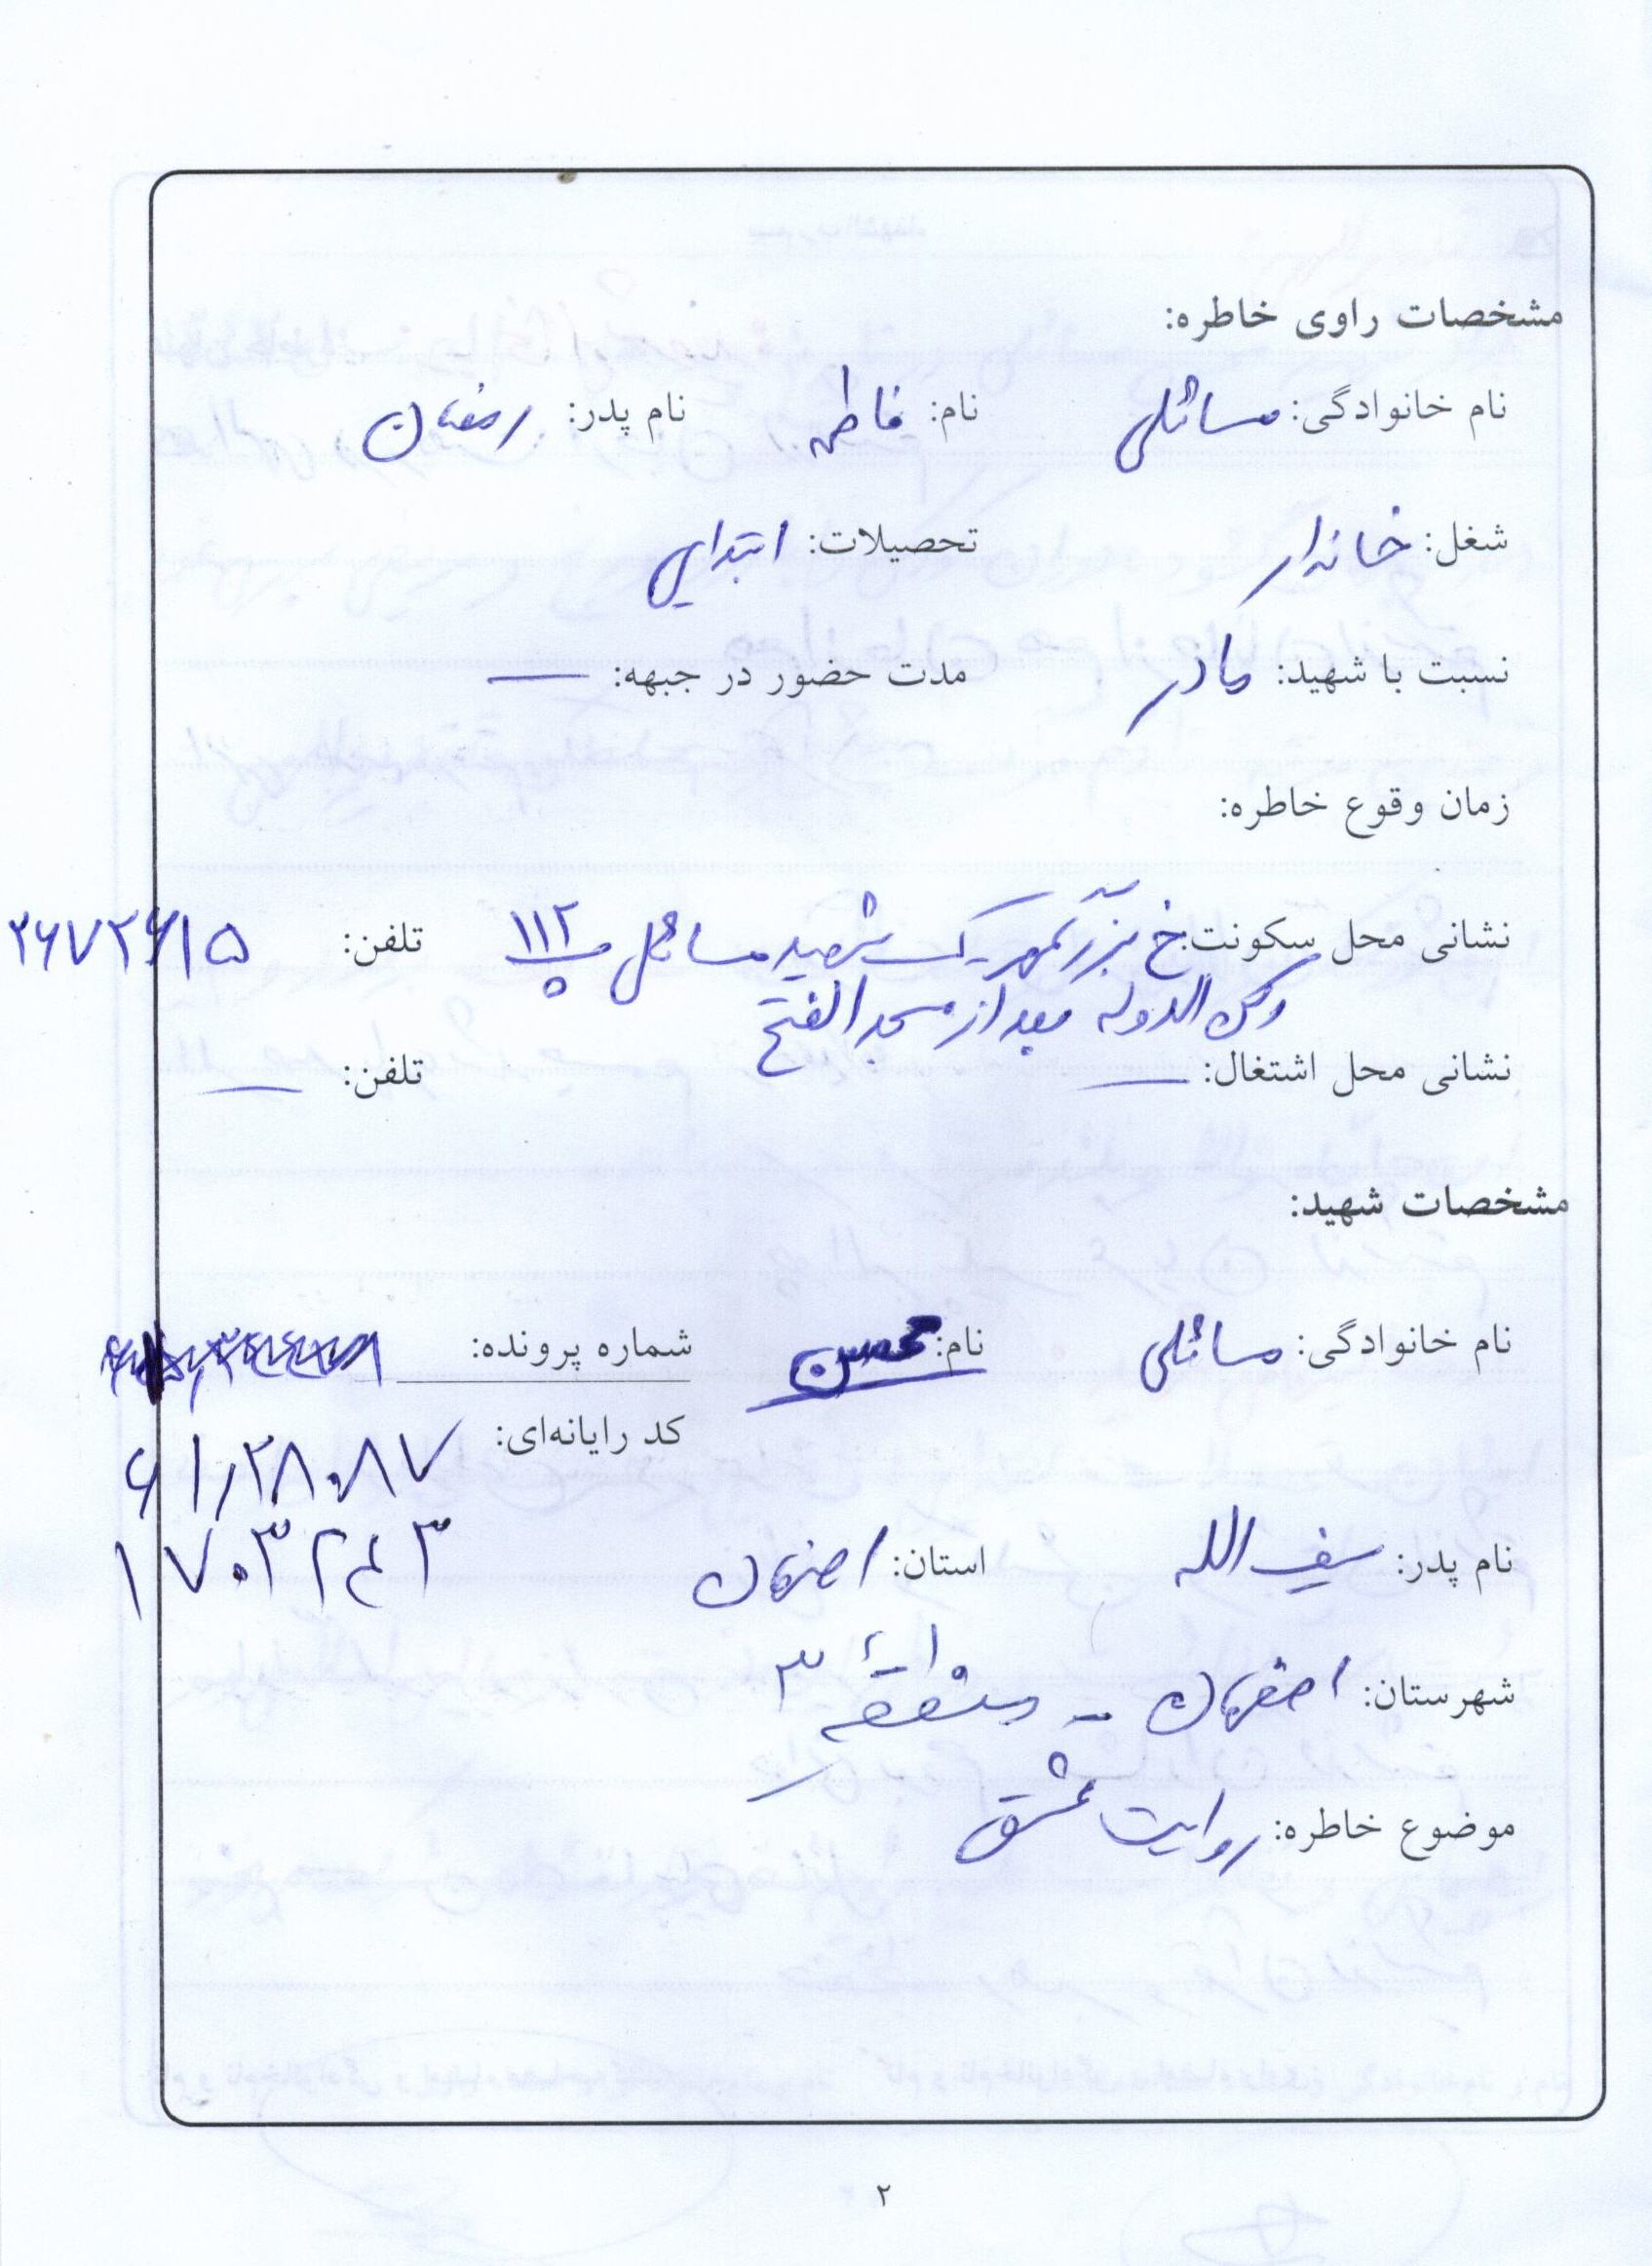 مشخصات راوی خاطره:
نام خانوادگی: مسائلی نام: فاطمه نام پدر: رمضان
شغل: خانه‌دار تحصیلات: ابتدایی
نسبت با شهید: مادر مدت حضور در جبهه: —
زمان وقوع خاطره:
نشانی محل سکونت: خ بزرگمهر - ک شهید مسائلی پ ۱۱۲ تلفن: ۲۶۷۲۶۱۵
رکن الدوله بعد از مسجد الفتح
نشانی محل اشتغال: — تلفن: —
مشخصات شهید:
نام خانوادگی: مسائلی نام: محسن شماره پرونده:
کد رایانه‌ای:
۶۱۲۸۰۸۷
نام پدر: سیف الله استان: اصفهان ۱۷۰۳۲۴۳
شهرستان: اصفهان - منطقه ۳
موضوع خاطره: روایت عشق
۲